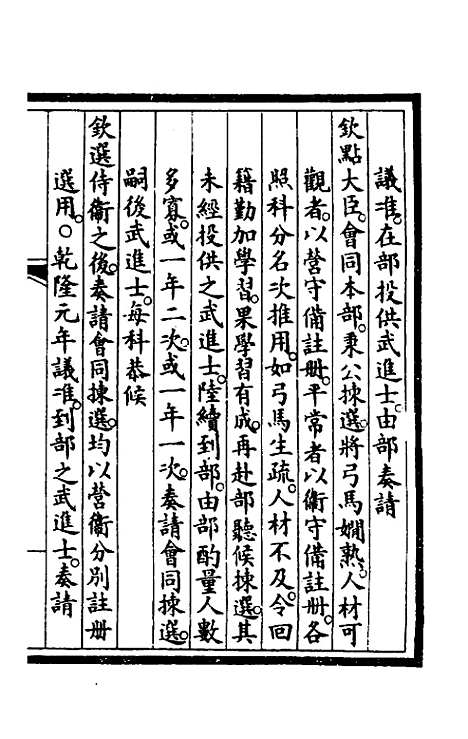 議准。在部投供武進士。由部奏請
欽點大臣。會同本部。秉公揀選。將弓馬嫺熟。人材可
觀者。以營守備註冊。平常者。以衛守備註冊。各
照科分名次推用。如弓馬生疏。人材不及。令回
籍勤加學習。果學習有成。再赴部聽候揀選。其
未經投供之武進士。陸續到部。由部酌量人數
多寡。或一年二次。或一年一次。奏請會同揀選。
嗣後武進士。每科恭候
欽選侍衛之後。奏請會同揀選。均以營衛分別註冊
選用。○乾隆元年議准。到部之武進士。奏請